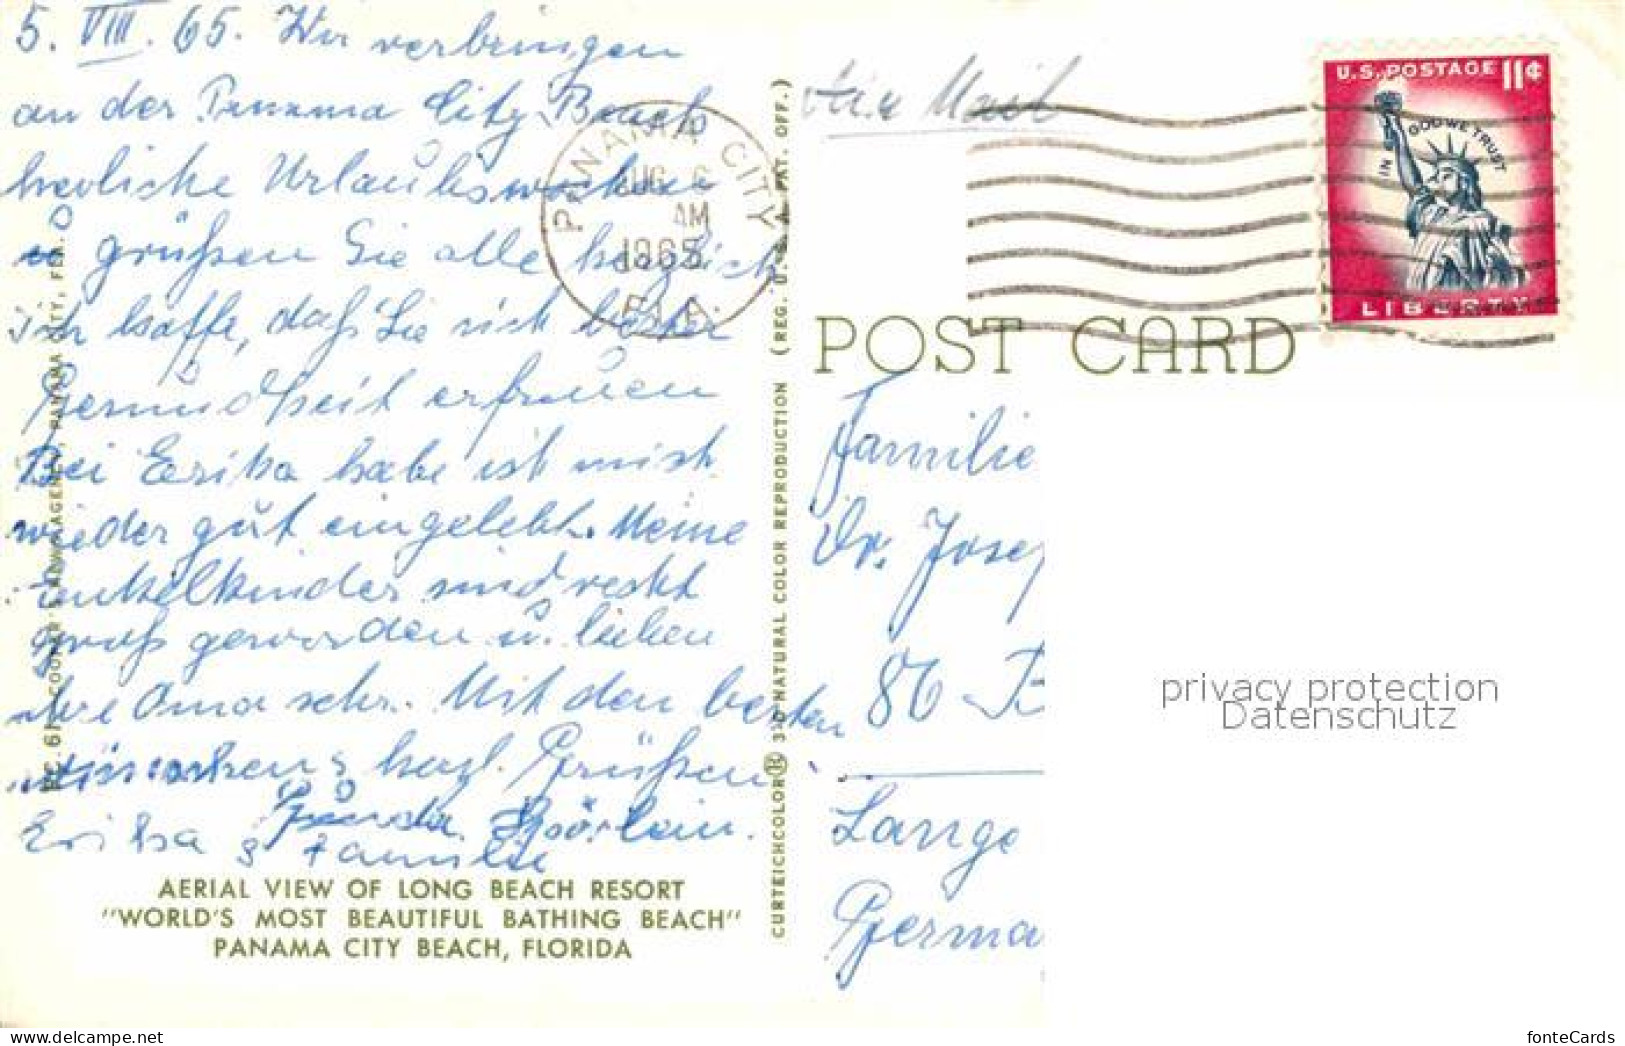 5. VIII. 65. Wir verbringen
an der Panama City Beach
herrliche Urlaubswochen
u grüßen Sie alle herzlich
ich hoffe, daß Sie sich bester
Gesundheit erfreuen
Bei Erika habe ich mich
wieder gut eingelebt. Meine
Enkelkinder sind recht
groß geworden u. lieben
ihre Oma sehr. Mit den besten
Wünschen & herzl. Grüßen
Erika & Familie
AERIAL VIEW OF LONG BEACH RESORT
"WORLD'S MOST BEAUTIFUL BATHING BEACH"
PANAMA CITY BEACH, FLORIDA
PANAMA CITY, FLA.
CURTEICHCOLOR® 3-D NATURAL COLOR REPRODUCTION (REG. U.S.A. PAT. OFF.)
PANAMA CITY
AUG 6
AM
1965
FLA.
Mail
U.S. POSTAGE 11¢
IN GOD WE TRUST
LIBERTY
POST CARD
Familie
Dr. Josef
86
Lange
Germa
privacy protection
Datenschutz
fonteCards